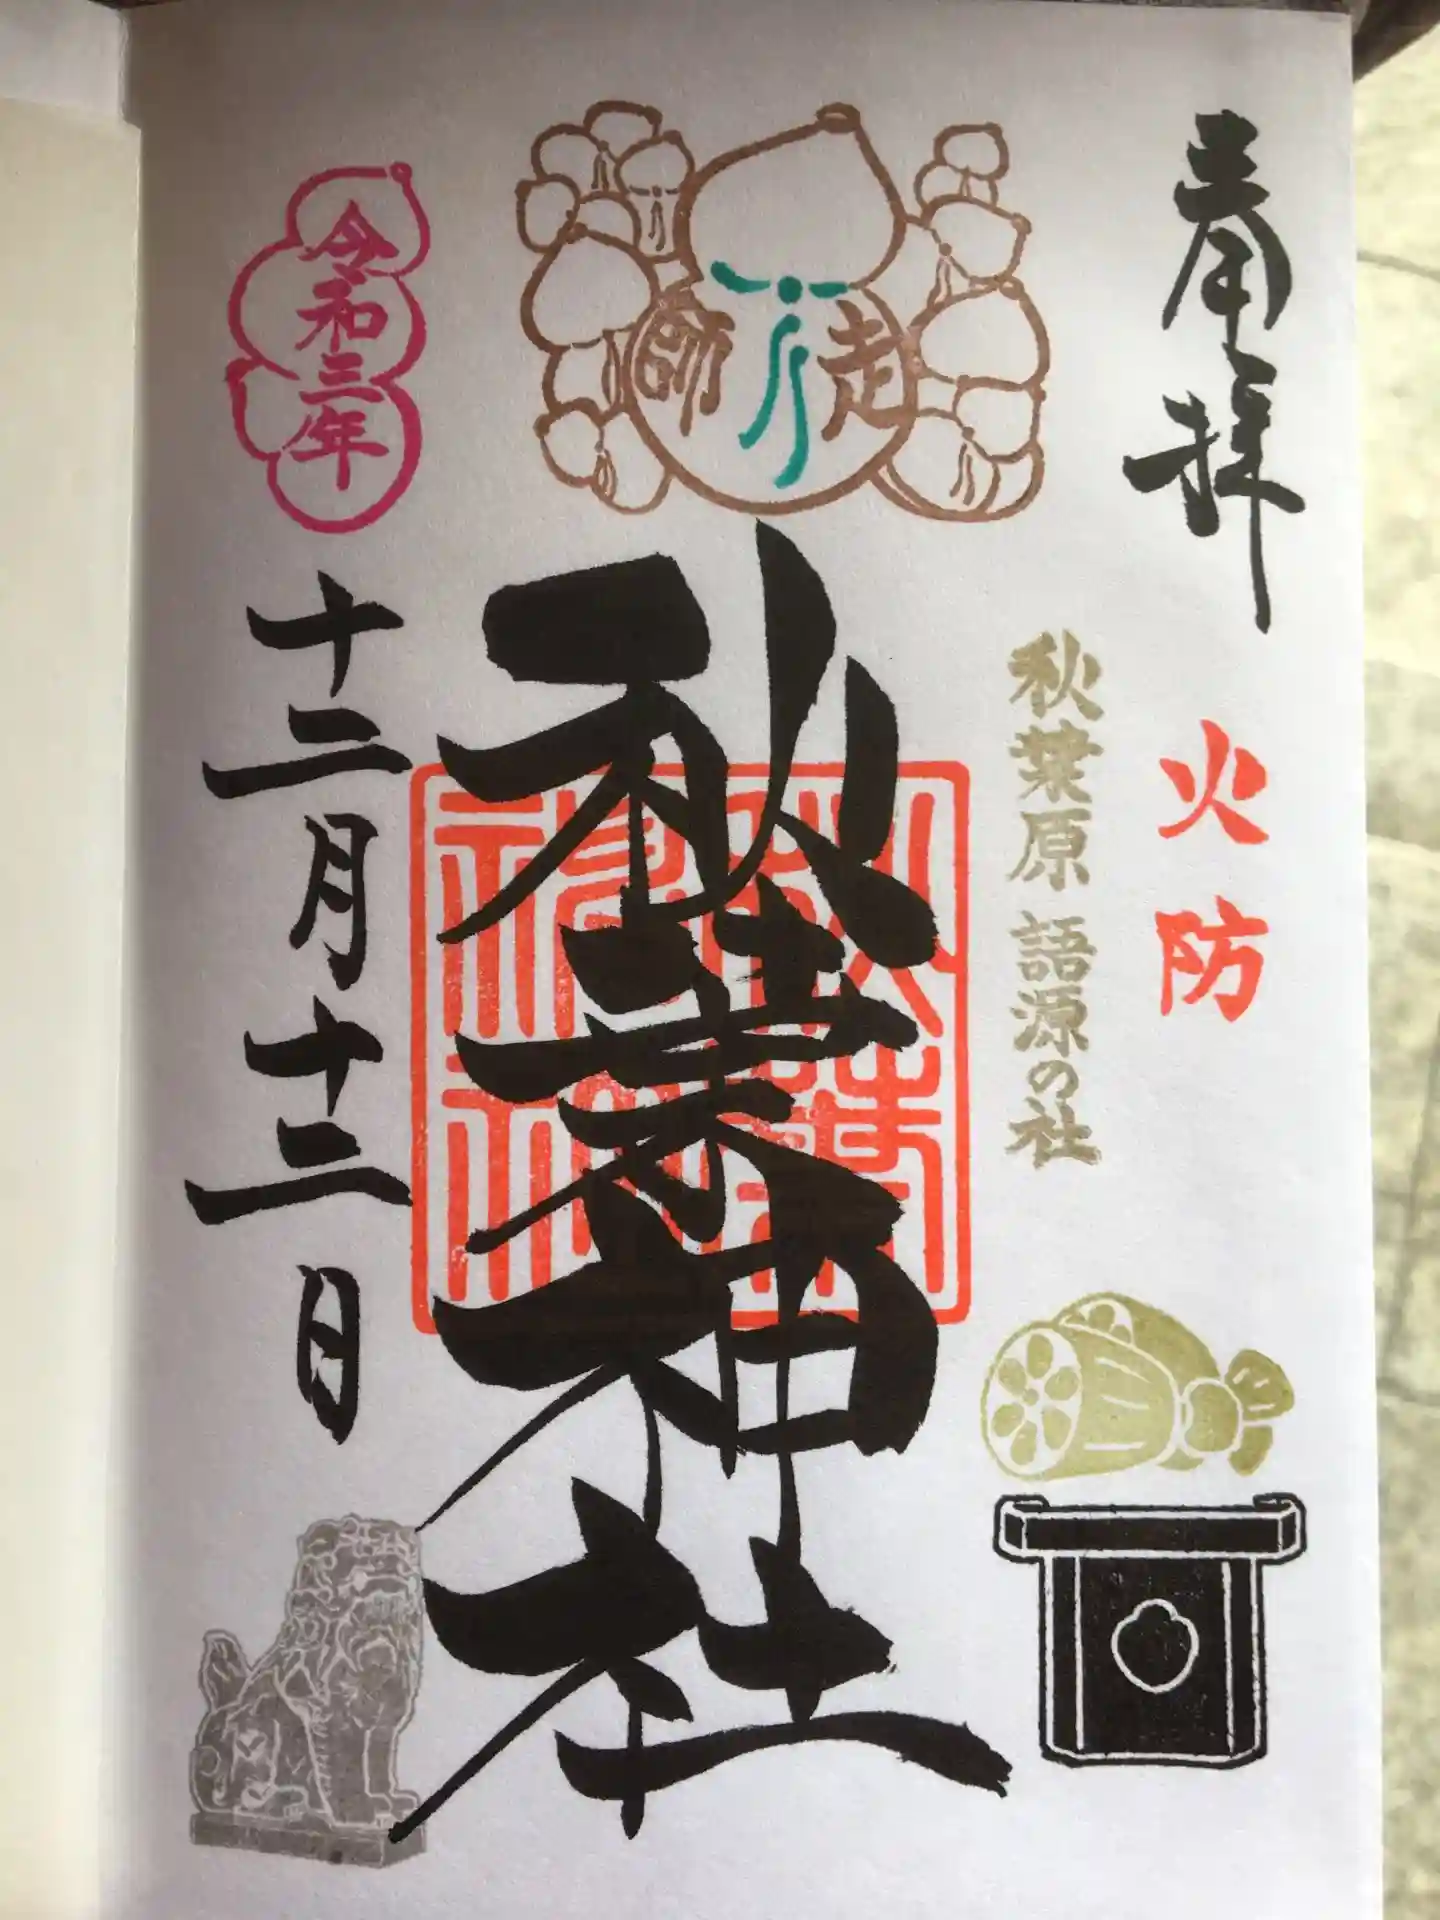 奉拝
火防
秋葉原 語源の社
走師
秋葉神社
秋葉神社
令和三年
十二月十二日